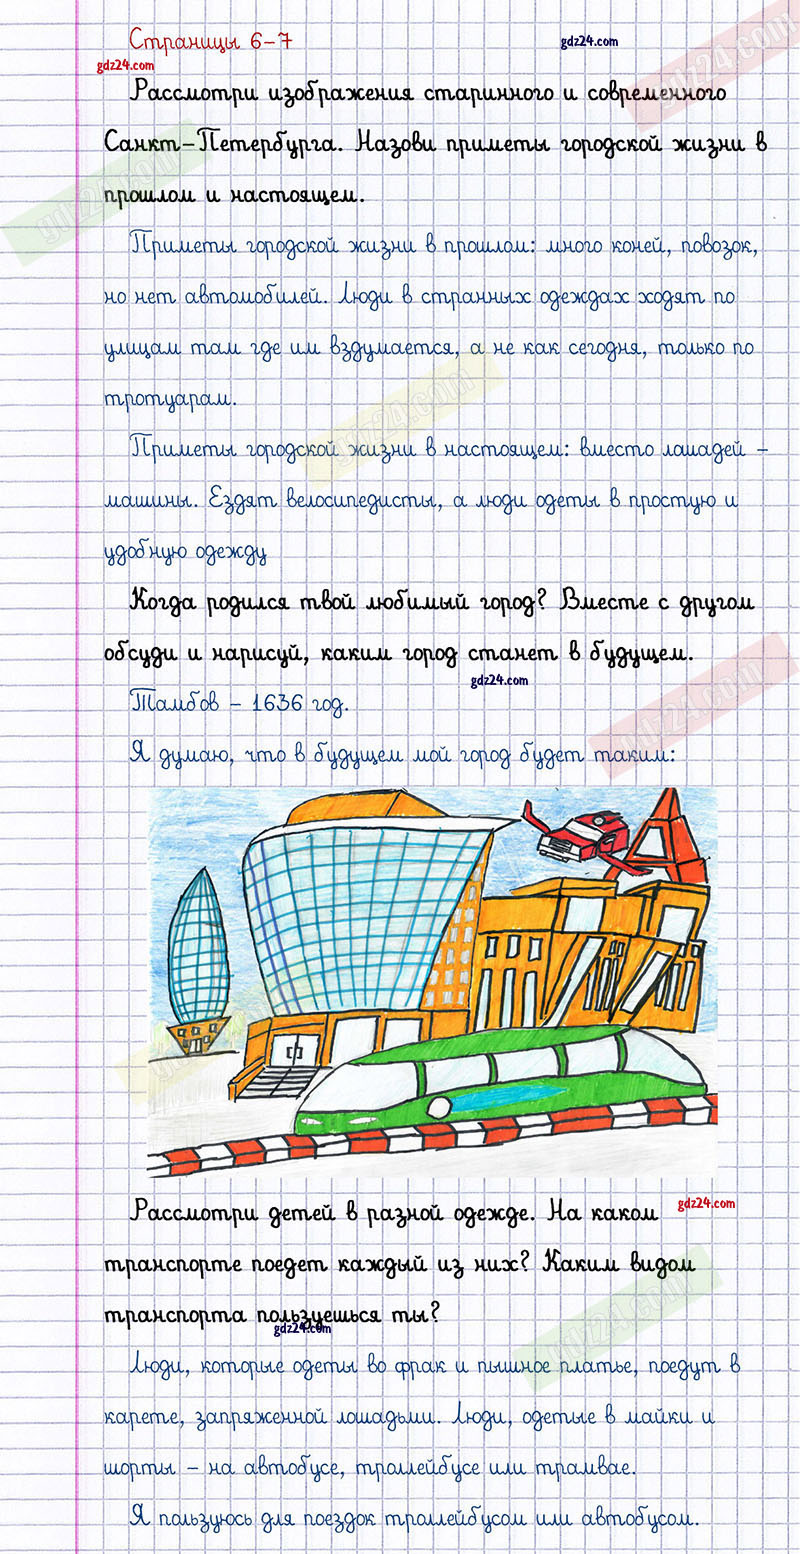 Страницы 6-7
gdz24.com
gdz24.com
Рассмотри изображения старинного и современного
Санкт-Петербурга. Назови приметы городской жизни в
прошлом и настоящем.
Приметы городской жизни в прошлом: много коней, повозок,
но нет автомобилей. Люди в странных одеждах ходят по
улицам там где им вздумается, а не как сегодня, только по
тротуарам.
Приметы городской жизни в настоящем: вместо лошадей -
машины. Ездят велосипедисты, а люди одеты в простую и
удобную одежду
Когда родился твой любимый город? Вместе с другом
обсуди и нарисуй, каким город станет в будущем.
gdz24.com
Тамбов - 1636 год.
Я думаю, что в будущем мой город будет таким:
Рассмотри детей в разной одежде. На каком
gdz24.com
транспорте поедет каждый из них? Каким видом
транспорта пользуешься ты?
gdz24.com
Люди, которые одеты во фрак и пышное платье, поедут в
карете, запряженной лошадьми. Люди, одетые в майки и
шорты - на автобусе, троллейбусе или трамвае.
Я пользуюсь для поездок троллейбусом или автобусом.
gdz24.com
gdz24.com
gdz24.com
gdz24.com
gdz24.com